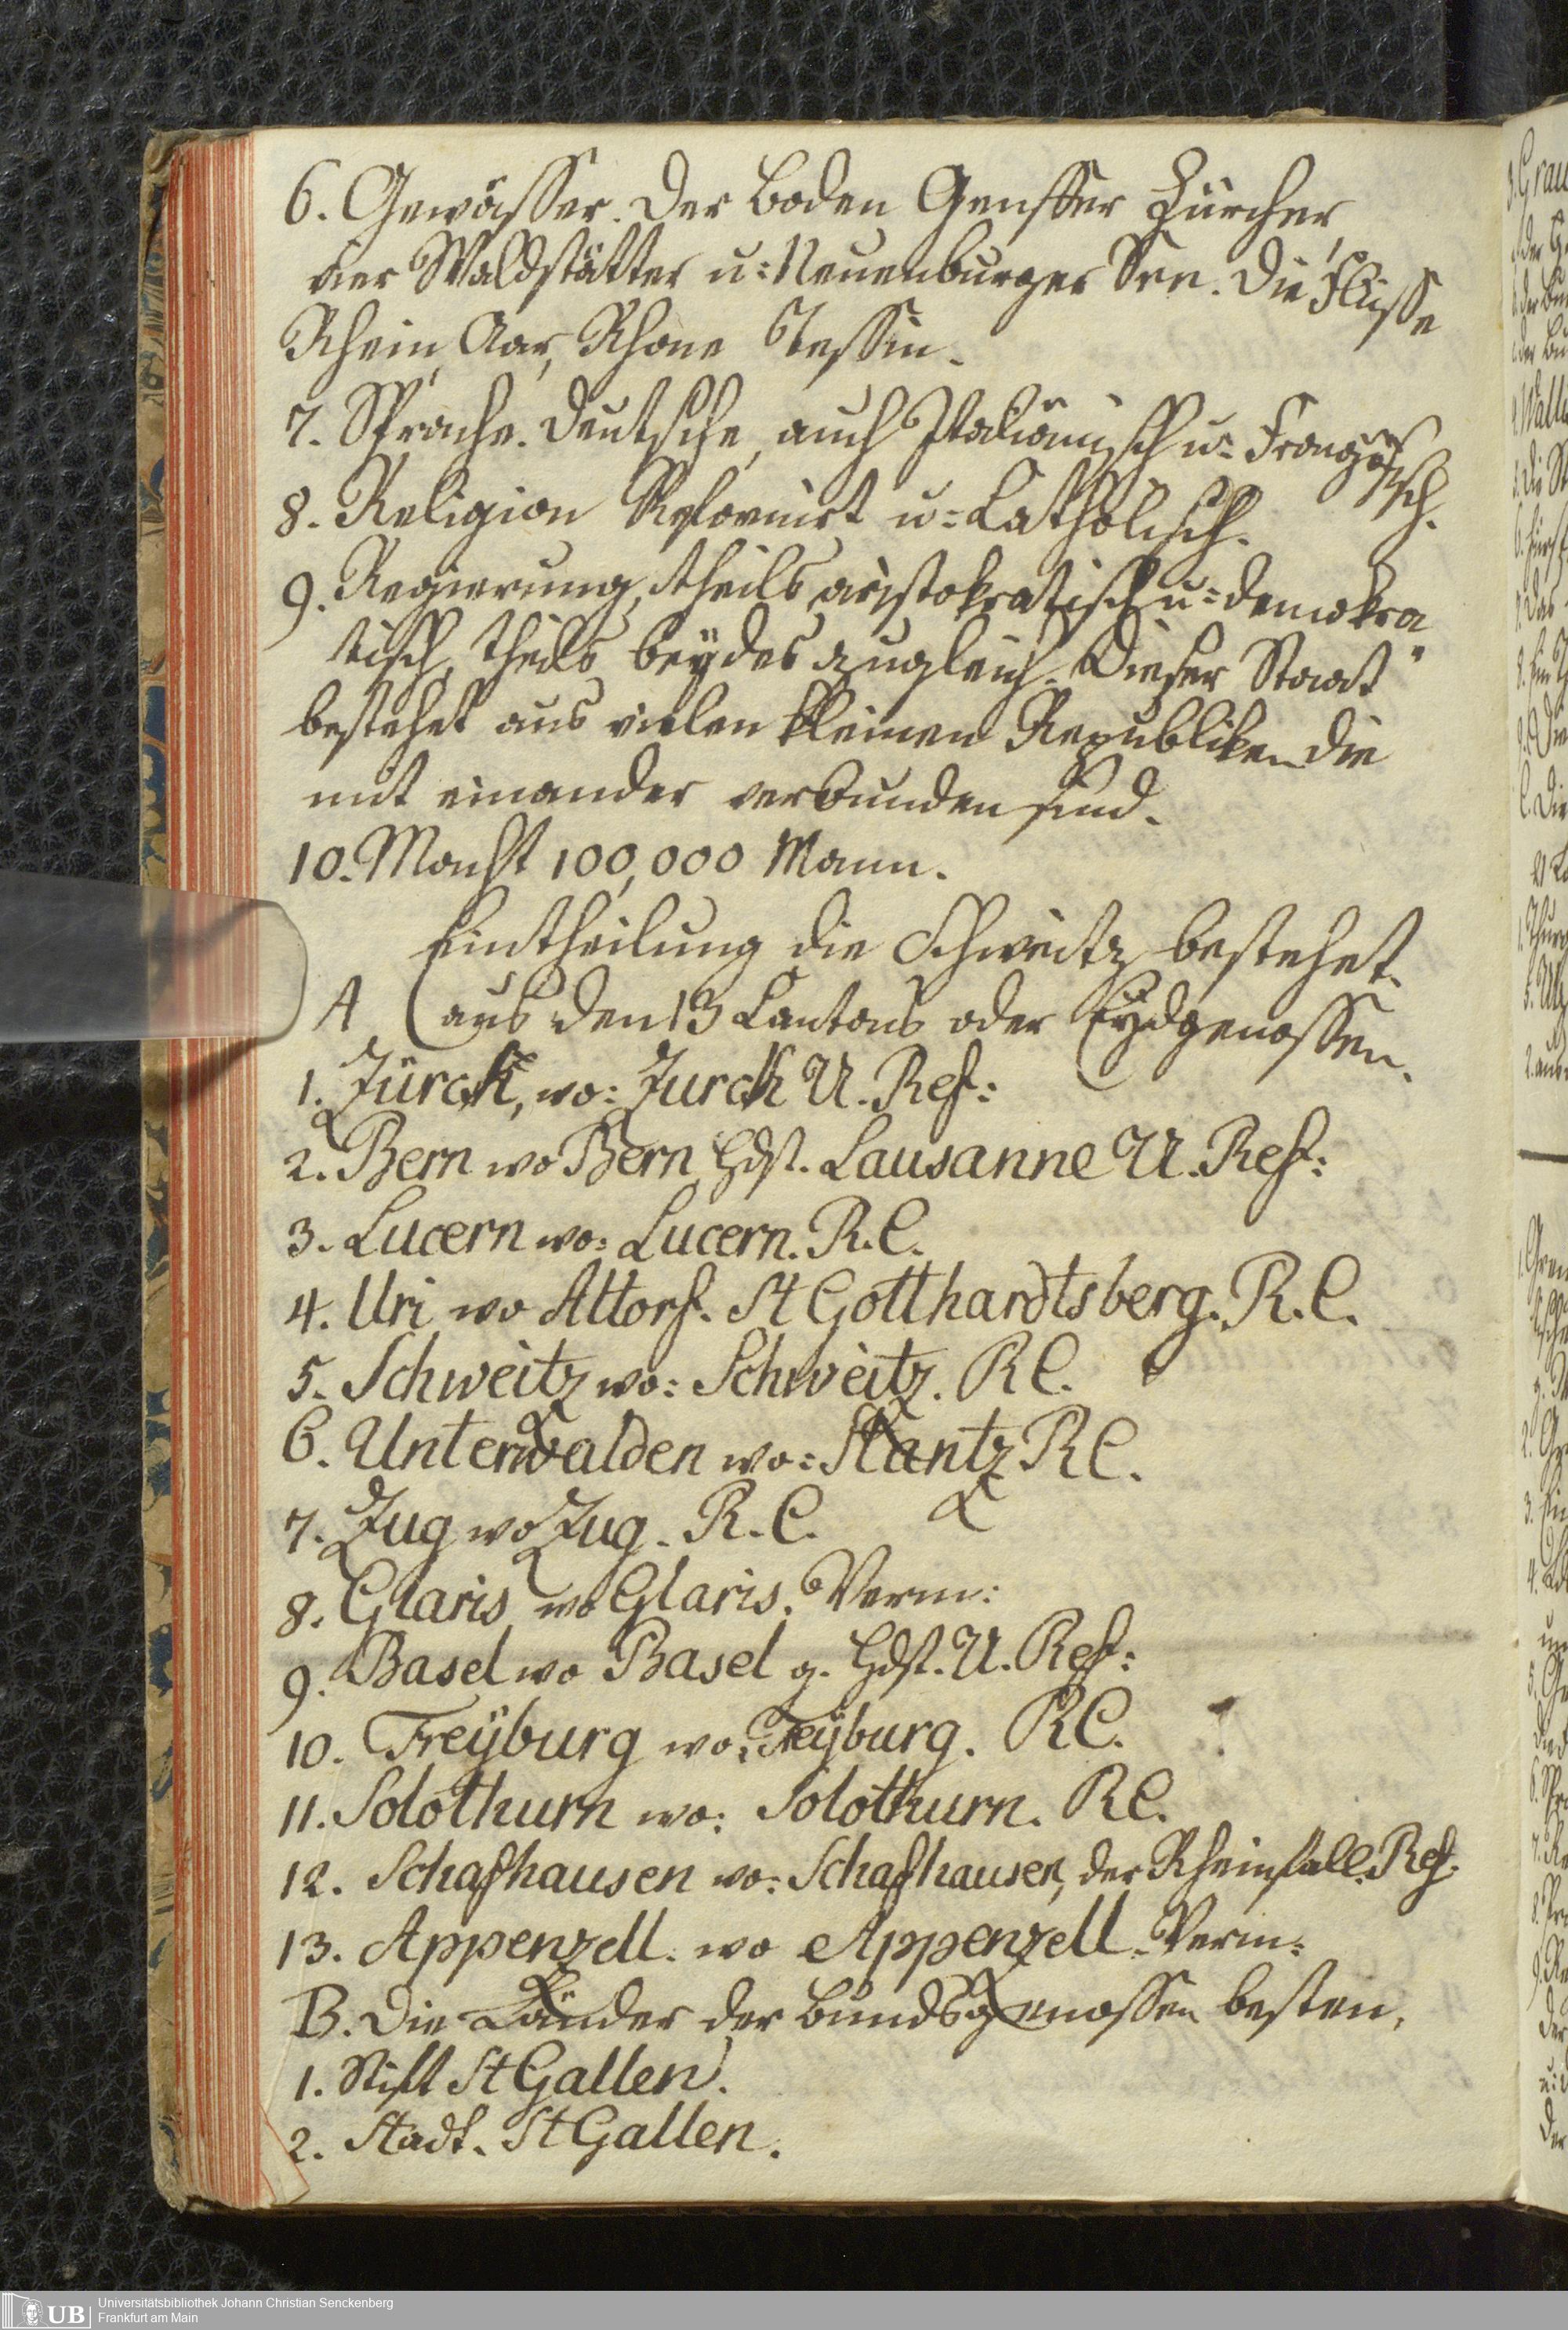 6. Gewässer. Der Boden Genffer Zürcher,
vier Waldstätter u: Neuenburger See. Die Flüsse
Rhein, Aar, Rhone Tessin.
7. Sprache. Deutsche, auch Italiänisch u: Französisch.
8. Religion Reformirt u: Catholisch.
9. Regierung, theils aristokratisch u: demokra
tisch, theils beÿdes zugleich. Dieser Staat
bestehet aus vielen kleinen Republiken die
mit einander verbunden sind.
10. Macht 100,000 Mann.
Eintheilung die Schweitz bestehet
A aus den 13 Cantons oder Eydgenossen.
1. Zürch, wo: Zurch U. Ref:
2. Bern wo Bern Hdst. Lausanne U. Ref:
3. Lucern wo: Lucern. R.C.
4. Uri wo Altorf. St Gotthardtsberg. R.C.
5. Schweitz wo: Schweitz. R C.
6. Unterwalden wo: Stantz R C.
7. Zug wo Zug. R. C.
8. Glaris wo Glaris. Verm:
9. Basel wo Basel g. Hdst. U. Ref:
10. Freÿburg wo: Freÿburg. R C.
11. Solothurn wo: Solothurn. R C.
12. Schafhausen wo: Schafhausen, der Rheinfall. Ref.
13. Appenzell. wo Appenzell. Verm:
B. Die Länder der Bundsgenossen besten,
1. Stift St Gallen.
2. Stadt. St Gallen.
UB Universitätsbibliothek Johann Christian Senckenberg
Frankfurt am Main